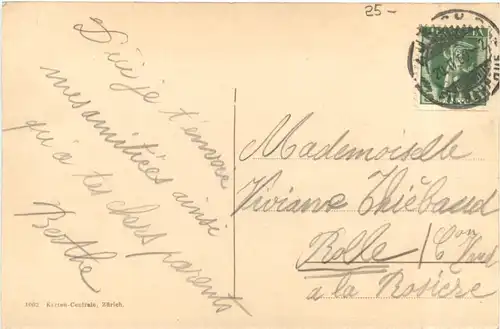 25-
D'ici je t'envoie
mes amitiées ainsi
qu'à tes chers parents
Berthe
Mademoiselle
Viviane Thiébaud
Rolle / Con Vaud
à la Rosière
Karten-Centrale, Zürich.